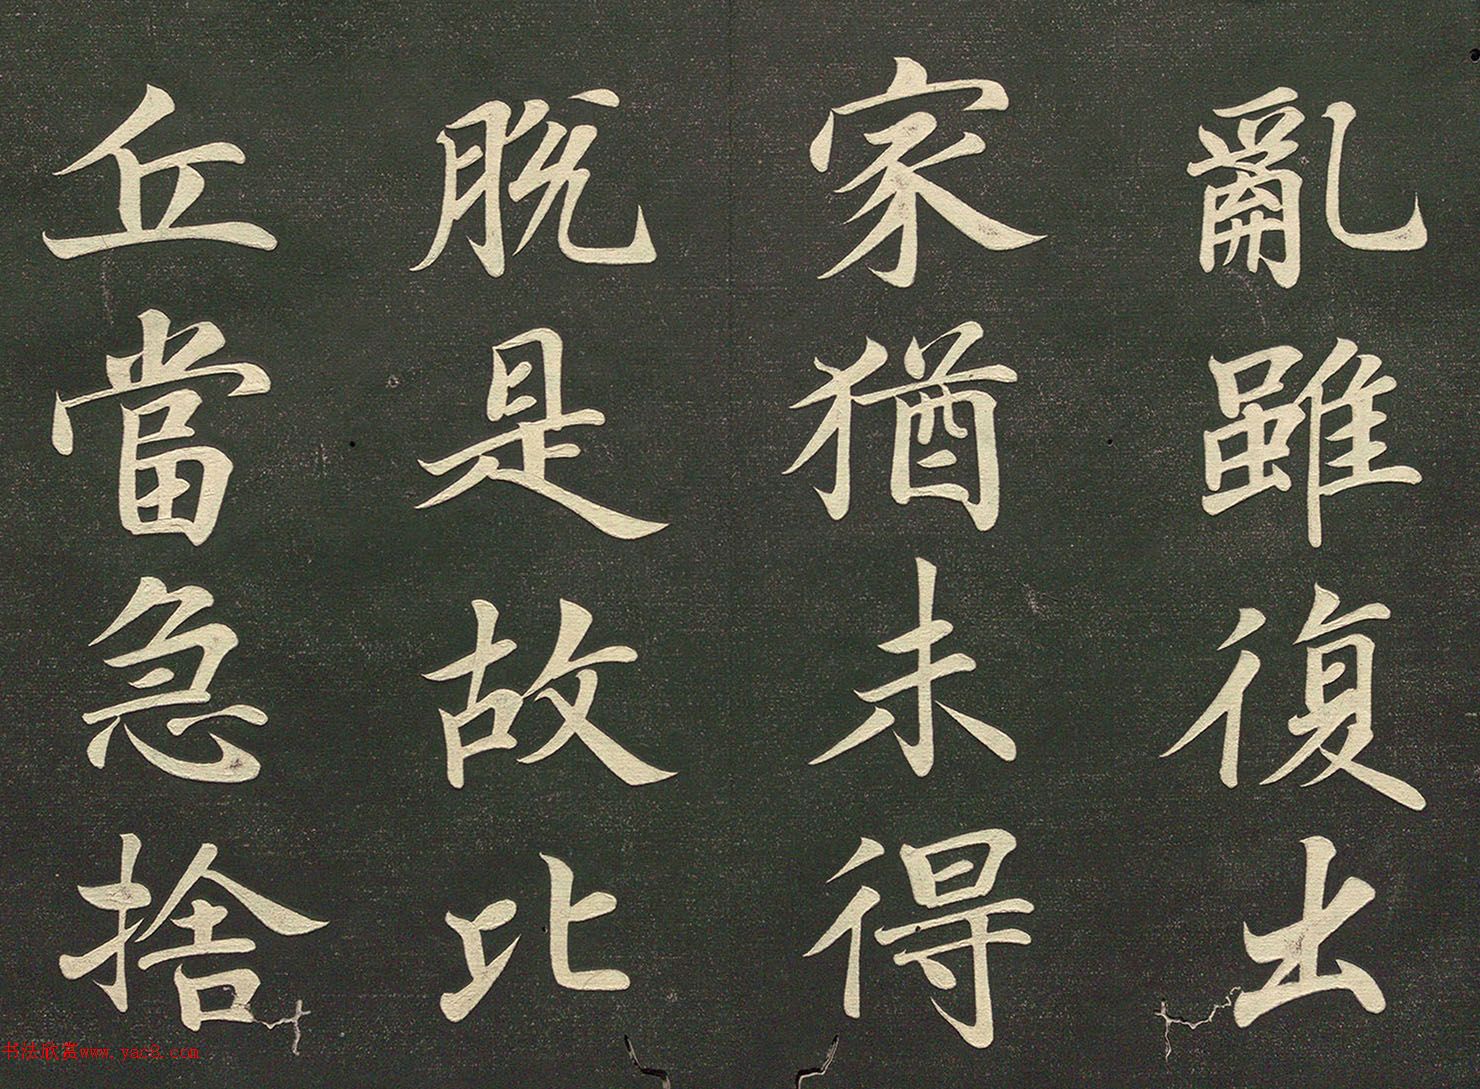 亂雖復出
家猶未得
脫是故比
丘當急捨
书法欣赏www.yac8.com